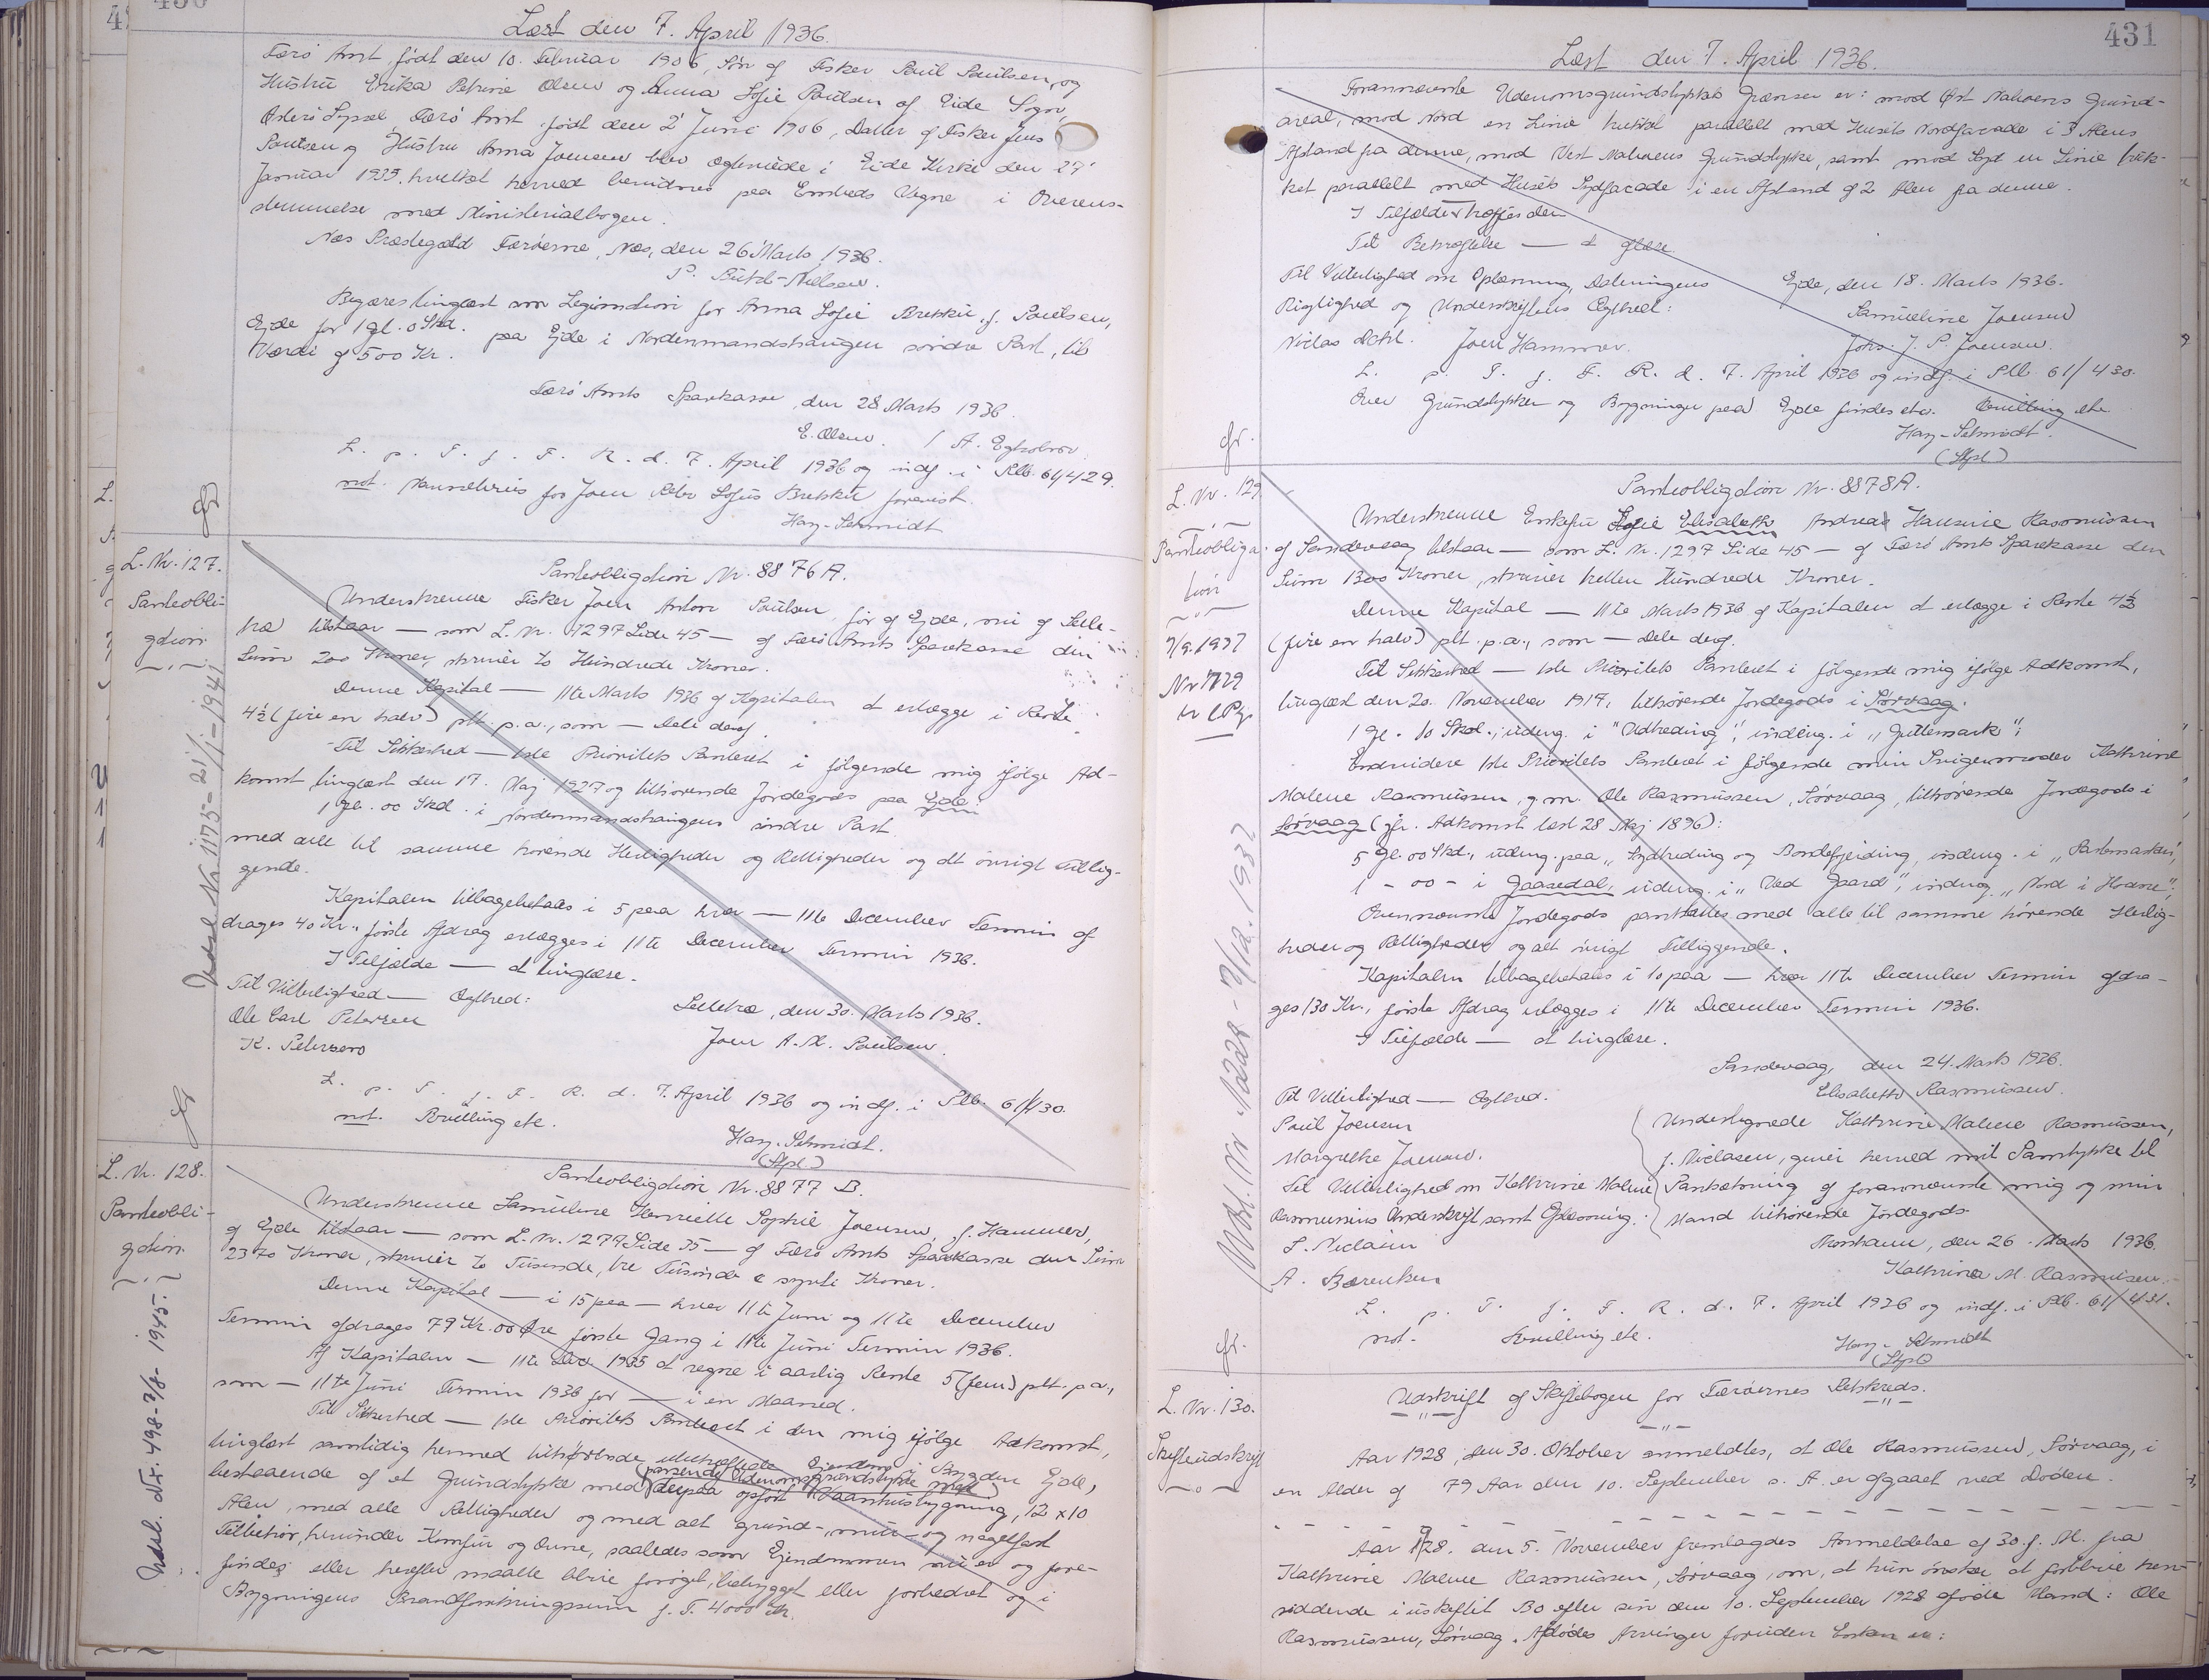 430
Læst den 7. April 1936.
Færø Amt, født den 10. Februar 1906, Søn af Fisker Poul Poulsen og
Hustru Erika Petrine Olsen og Anna Sofie Poulsen af Eide Sogn,
Østerø Syssel, Færø Amt født den 2' Juni 1906, Datter af Fisker Jens
Poulsen og Hustru Anna Joensen blev ægteviede i Eide Kirke den 27'
Januar 1935. hvilket herved bevidnes paa Embeds Vegne i Overens-
stemmelse med Ministerialbogen.
Næs Præstegæld Færøerne, Næs, den 26' Marts 1936.
Begæres tinglæst som Legitimation for Anna Sofie Brekku, f. Poulsen,
Ejde for 1 gl. 0 Skd. paa Ejde i Nordenmandshaugen søndre Part, til
Værdi af 500 Kr.
Færø Amts Sparekasse, den 28 Marts 1936.
E. Olsen. / A.
L. p. T. f. F. R. d. 7. April 1936 og indf. i Plb. 61/429.
not. Navnebevis for Joen Peter Sofus Brekku forevist.
Hay-Schmidt
L. Nr. 127.
Panteobli-
gation
Panteobligation Nr. 8876A.
Underskrevne Fisker Joen Anton Poulsen før af Ejde, nu af Selle-
træ tilstaar — som L. Nr. 1297 Side 45 — af Færø Amts Sparekasse den
Sum 200 Kroner, skriver to Hundrede Kroner.
Denne Kapital — 11te Marts 1936 af Kapitalen at erlægge i Rente
4½ (fire en halv) plt. p.a., som — Dele deraf.
Til Sikkerhed — 1ste Prioritets Panteret i følgende mig ifølge Ad-
komst tinglæst den 17. Maj 1927 og tilhørende Jordegods paa Ejde:
1 gl. 00 Skd. i Nordenmandshaugens søndre Part.
med alle til samme hørende Herligheder og Rettigheder og alt øvrigt Tillig-
gende.
Kapitalen tilbagebetales i 5 paa hver — 11te December Termin af
drages 40 Kr., første Afdrag erlægges i 11te December Termin 1936.
I Tilfælde — at tinglæse.
Til Vitterlighed — Ægthed:
Selletræ, den 30. Marts 1936.
Ole Carl Petersen
Joen A. M. Poulsen.
K. Petersen
L. p. T. f. F. R. d. 7. April 1936 og indf. i Plb. 61/430.
not. Bevilling etc.
Hay-Schmidt.
(Stpl)
L. Nr. 128.
Panteobli-
gation
Panteobligation Nr. 8877 B.
Underskrevne Samueline Henriette Sophie Joensen, f. Hammer,
af Ejde tilstaar — som L. Nr. 1277 Side 35 — af Færø Amts Sparekasse den Sum
2370 Kroner, skriver to Tusinde, tre Hundrede & syvti Kroner.
Denne Kapital — i 15 paa — hver 11te Juni og 11te December
Termin afdrages 79 Kr. 00 Øre første Gang i 11te Juni Termin 1936.
Af Kapitalen — 11te Dec. 1935 at regne i aarlig Rente 5 (fem) plt. p.a.,
som — 11te Juni Termin 1936 for — i en Maaned.
Til Sikkerhed — 1ste Prioritets Panteret i den mig ifølge Adkomst,
tinglæst samtidig hermed tilhørende Ejendom i Bygden Ejde,
bestaaende af et Grundstykke med derpaa opført Vaaningshusbygning, 12 x 10
Alen, med alle Rettigheder og med alt grund-, mur- og nagelfast
Tilbehør, herunder Komfur og Ovne, saaledes som Ejendommen nu er og fore-
findes eller herefter maatte blive forøget, bebygget eller forbedret og i
Bygningens Brandforsikringssum f. T. 4000 Kr.
Udsl. Nr. 1175 - 21/1 - 1941
Udsl. Nr. 498 - 3/8 - 1945.
431
Læst den 7. April 1936.
Forannævnte Udenomsgrundstykkes Grænser er: mod Øst Naboens Grund-
areal, mod Nord en Linie trukket parallelt med Husets Nordfacade i 3 Alens
Afstand fra denne, mod Vest Naboens Grundstykke, samt mod Syd en Linie truk-
ket parallelt med Husets Sydfacade i en Afstand af 2 Alen fra denne.
I Tilfælde træffes den
Til Bekræftelse — at
Til Vitterlighed om Oplæsning, Dateringens
Ejde, den 18. Marts 1936.
Rigtighed og Underskriftens Ægthed:
Samueline Joensen
Niclas Dahl. Joen Hammer.
Johs. J. P. Joensen.
L. p. T. f. F. R. d. 7. April 1936 og indf. i Plb 61/430.
Over Grundstykker og Bygninger paa Ejde findes etc. Bevilling etc
Hay-Schmidt.
(Stpl)
L. Nr. 129
Panteobliga-
tion
Panteobligation Nr. 8878A.
Underskrevne Enkefru Sofie Elisabeth Andrea Hansine Rasmussen
af Sandevaag tilstaar — som L. Nr. 1297 Side 45 — af Færø Amts Sparekasse den
Sum 1300 Kroner, skriver tretten Hundrede Kroner.
Denne Kapital — 11te Marts 1936 af Kapitalen at erlægge i Rente 4½
(fire en halv) plt. p.a., som — Dele deraf.
Til Sikkerhed — 1ste Prioritets Panteret i følgende mig ifølge Adkomst,
tinglæst den 20. November 1914, tilhørende Jordegods i Sørvaag:
1 gl. 10 Skd., udeng. i "Udtreding", indeng. i "Guttemark",
Endvidere 1ste Prioritets Panteret i følgende min Svigermoder Kathrine
Malene Rasmussen, g.m. Ole Rasmussen, Sørvaag, tilhørende Jordegods i
Sørvaag (jfr. Adkomst læst 28 Maj 1896):
5 gl. 00 Skd., udeng. paa "Sydtreding og Bondefjeiding, indeng. i
1 - 00 - i Gaasedal, udeng. i "Ved Gaard", indeng. "Nord i
Ovennævnte Jordegods pantsættes med alle til samme hørende Herlig-
heder og Rettigheder og alt øvrigt Tilliggende.
Kapitalen tilbagebetales i 10 paa — hver 11te December Termin afdra-
ges 130 Kr., første Afdrag erlægges i 11te December Termin 1936.
I Tilfælde — at tinglæse.
Sandevaag, den 24. Marts 1936.
Til Vitterlighed — Ægthed.
Elisabeth Rasmussen.
Poul Joensen
Undertegnede Kathrine Malene Rasmussen,
Margrethe Joensen.
f. Niclasen, giver herved mit Samtykke til
Til Vitterlighed om Kathrine Malene
Pantsætning af forannævnte mig og min
Rasmussens Underskrift samt Oplæsning.
Mand tilhørende Jordegods.
S. Niclasen
Thorshavn, den 26. Marts 1936.
A. Bærentsen
Kathrina M. Rasmussen.
L. p. T. f. F. R. d. 7. April 1936 og indf. i Plb. 61/431.
not. Bevilling etc.
Hay-Schmidt
(Stpl)
L. Nr. 130.
Skifteudskrift
Udskrift af Skiftebogen for Færøernes Retskreds.
Aar 1928, den 30. Oktober anmeldtes, at Ole Rasmussen, Sørvaag, i
en Alder af 79 Aar den 10. September s. A. er afgaaet ved Døden.
Aar 1928. den 5. November fremlagdes Anmeldelse af 30. f. M. fra
Kathrine Malene Rasmussen, Sørvaag, om, at hun ønsker at forblive hen-
siddende i uskiftet Bo efter sin den 10. September 1928 afdøde Mand: Ole
Rasmussen, Sørvaag. Afdødes Arvinger foruden Enken er: